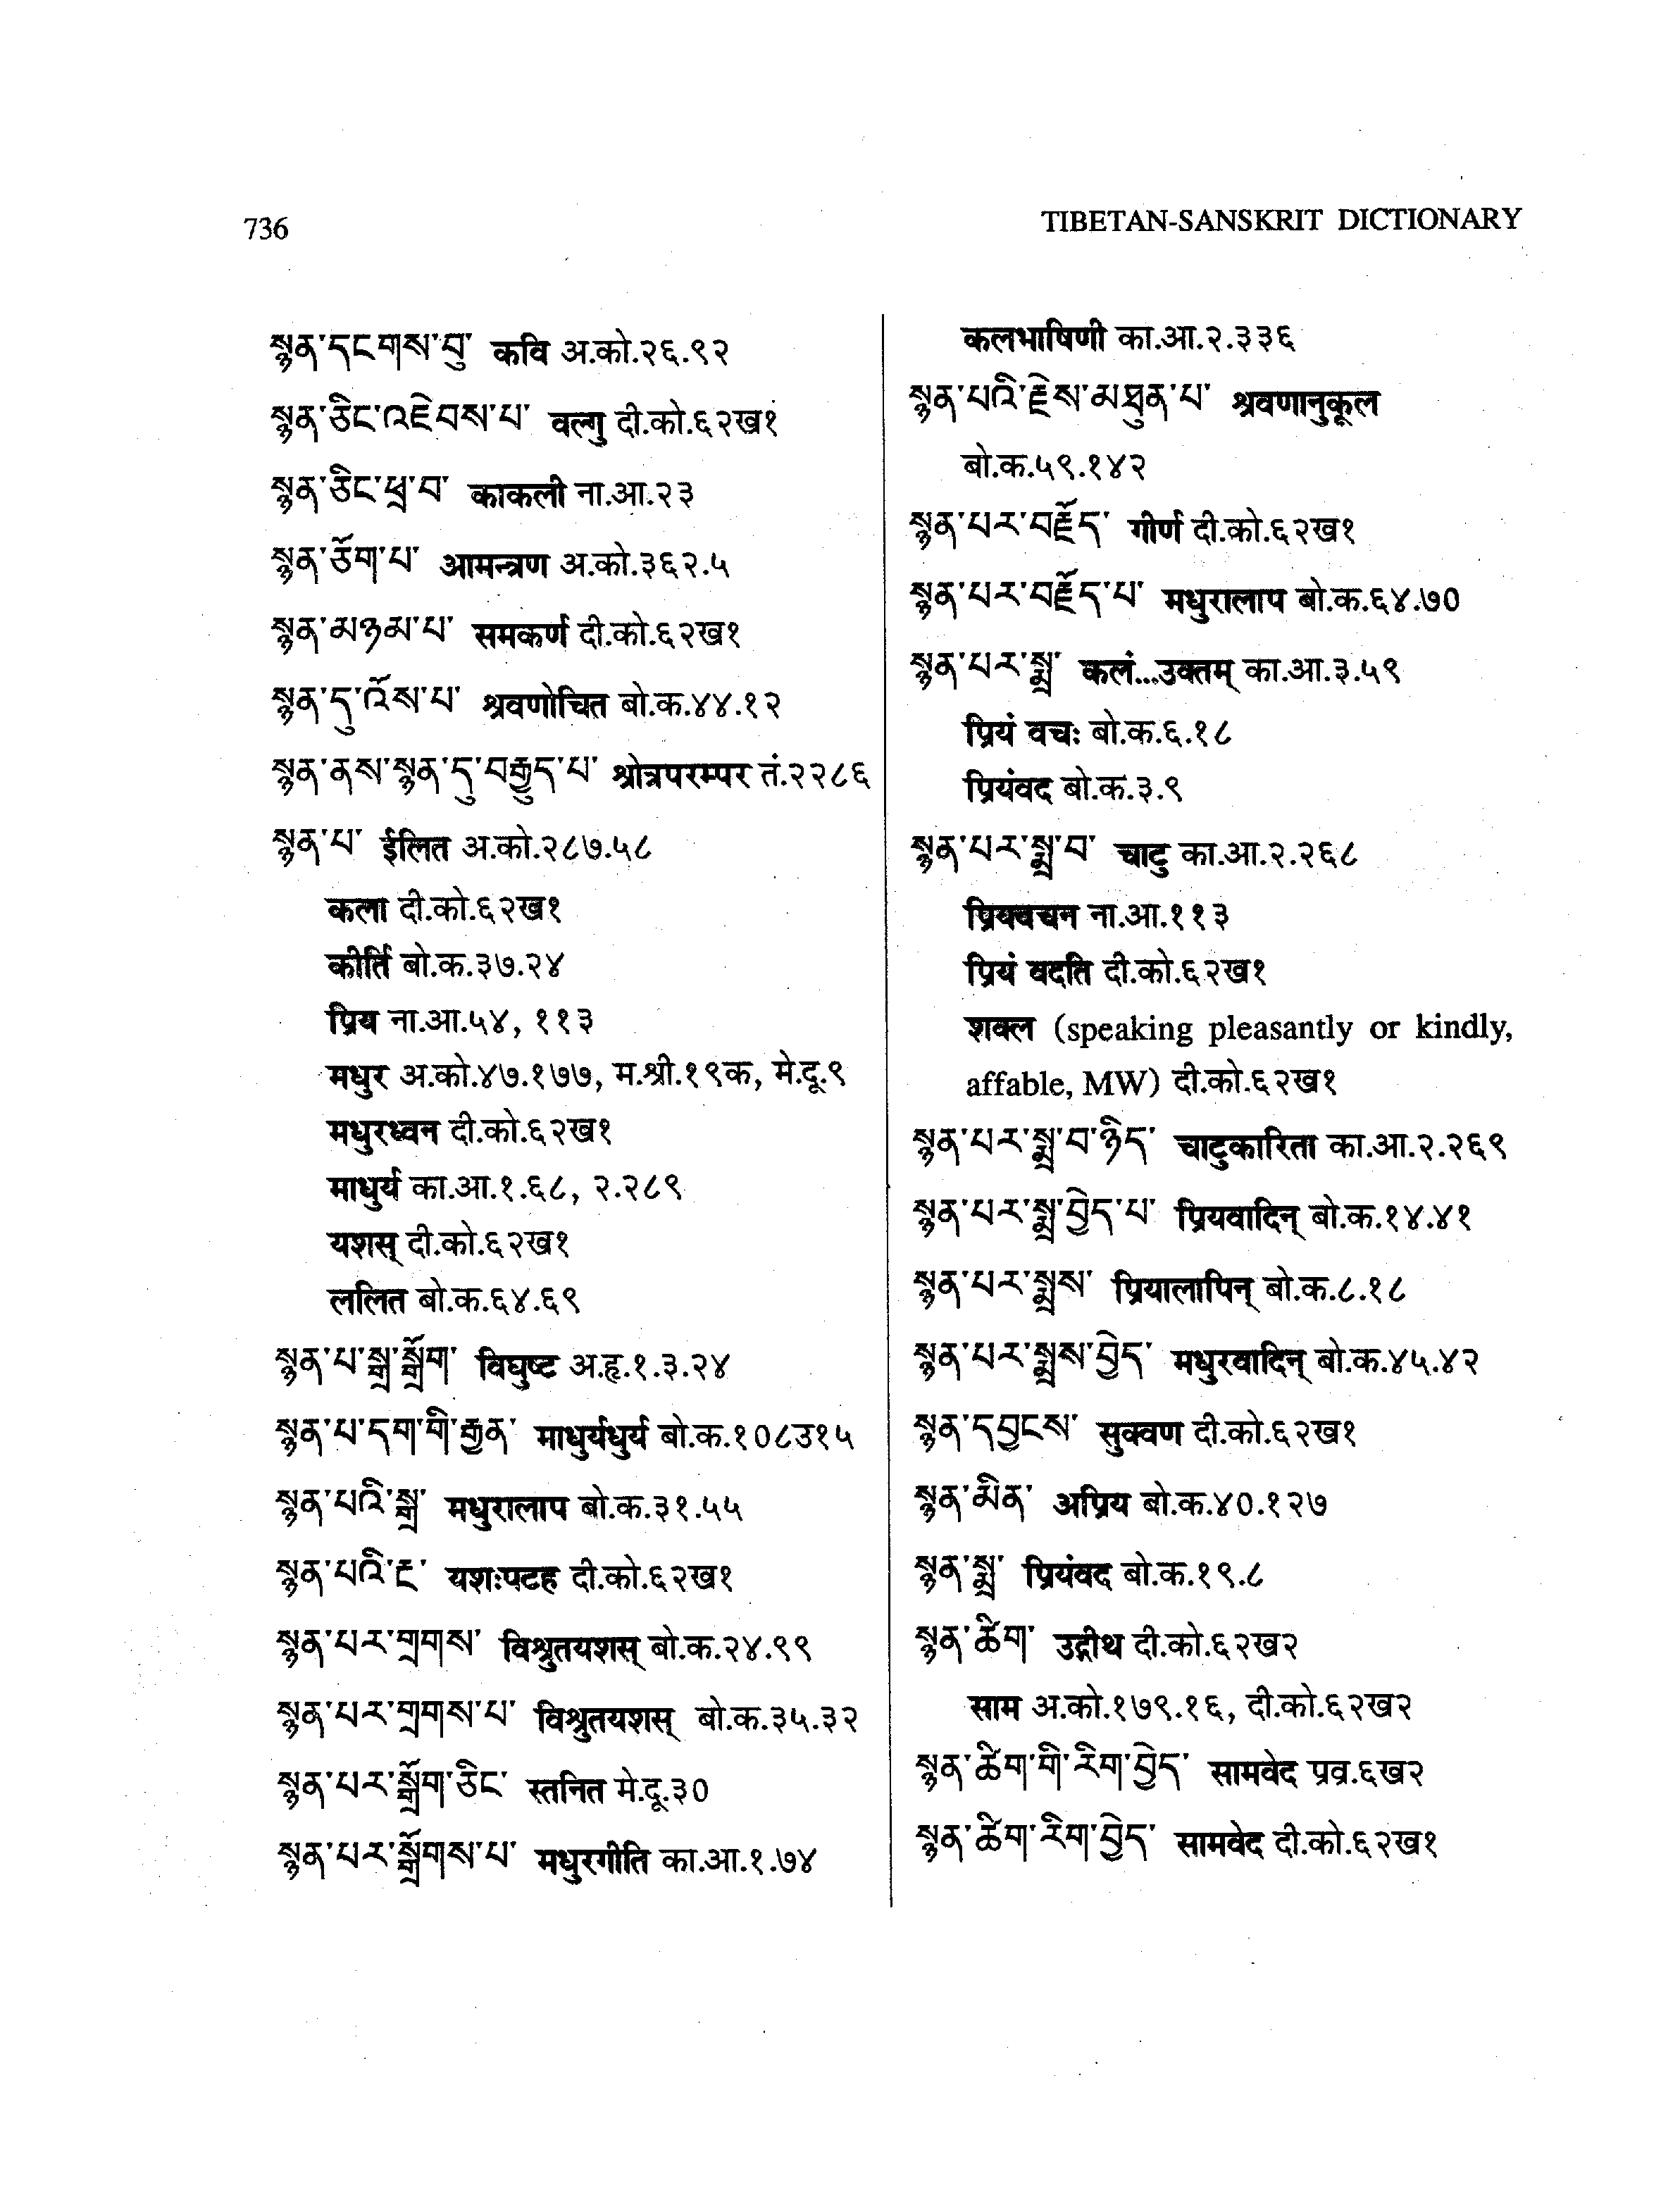 736
TIBETAN-SANSKRIT DICTIONARY
སྙན་དངགས་བུ་ कवि अ.को.२६.९२
སྙན་ཅིང་འཇེབས་པ་ वल्गु दी.को.६२ख१
སྙན་ཅིང་ཕྲ་བ་ काकली ना.आ.२३
སྙན་ཅོག་པ་ आमन्त्रण अ.को.३६२.५
སྙན་མཉམ་པ་ समकर्ण दी.को.६२ख१
སྙན་དུ་འོས་པ་ श्रवणोचित बो.क.४४.१२
སྙན་ནས་སྙན་དུ་བརྒྱུད་པ་ श्रोत्रपरम्पर तं.२२८६
སྙན་པ་ ईलित अ.को.२८७.५८
कला दी.को.६२ख१
कीर्ति बो.क.३७.२४
प्रिय ना.आ.५४, ११३
मधुर अ.को.४७.१७७, म.श्री.१९क, मे.दू.९
मधुरध्वन दी.को.६२ख१
माधुर्य का.आ.१.६८, २.२८९
यशस् दी.को.६२ख१
ललित बो.क.६४.६९
སྙན་པ་སྒྲ་སྒྲོག་ विघुष्ट अ.हृ.१.३.२४
སྙན་པ་དག་གི་རྒྱན་ माधुर्यधुर्य बो.क.१०८उ१५
སྙན་པའི་སྒྲ་ मधुरालाप बो.क.३१.५५
སྙན་པའི་རྔ་ यशःपटह दी.को.६२ख१
སྙན་པར་གྲགས་ विश्रुतयशस् बो.क.२४.९९
སྙན་པར་གྲགས་པ་ विश्रुतयशस् बो.क.३५.३२
སྙན་པར་སྒྲོག་ཅིང་ स्तनित मे.दू.३०
སྙན་པར་སྒྲོགས་པ་ मधुरगीति का.आ.१.७४
कलभाषिणी का.आ.२.३३६
སྙན་པའི་རྗེས་མཐུན་པ་ श्रवणानुकूल
बो.क.५९.१४२
སྙན་པར་བརྗོད་ गीर्ण दी.को.६२ख१
སྙན་པར་བརྗོད་པ་ मधुरालाप बो.क.६४.७०
སྙན་པར་སྨྲ་ कलं...उक्तम् का.आ.३.५९
प्रियं वचः बो.क.६.१८
प्रियंवद बो.क.३.९
སྙན་པར་སྨྲ་བ་ चाटु का.आ.२.२६८
प्रियवचन ना.आ.११३
प्रियं वदति दी.को.६२ख१
शक्ल (speaking pleasantly or kindly,
affable, MW) दी.को.६२ख१
སྙན་པར་སྨྲ་བ་ཉིད་ चाटुकारिता का.आ.२.२६९
སྙན་པར་སྨྲ་བྱེད་པ་ प्रियवादिन् बो.क.१४.४१
སྙན་པར་སྨྲས་ प्रियालापिन् बो.क.८.१८
སྙན་པར་སྨྲས་བྱེད་ मधुरवादिन् बो.क.४५.४२
སྙན་དབྱངས་ सुक्वण दी.को.६२ख१
སྙན་མིན་ अप्रिय बो.क.४०.१२७
སྙན་སྨྲ་ प्रियंवद बो.क.१९.८
སྙན་ཚིག་ उद्गीथ दी.को.६२ख२
साम अ.को.१७९.१६, दी.को.६२ख२
སྙན་ཚིག་གི་རིག་བྱེད་ सामवेद प्रव्र.६ख२
སྙན་ཚིག་རིག་བྱེད་ सामवेद दी.को.६२ख१